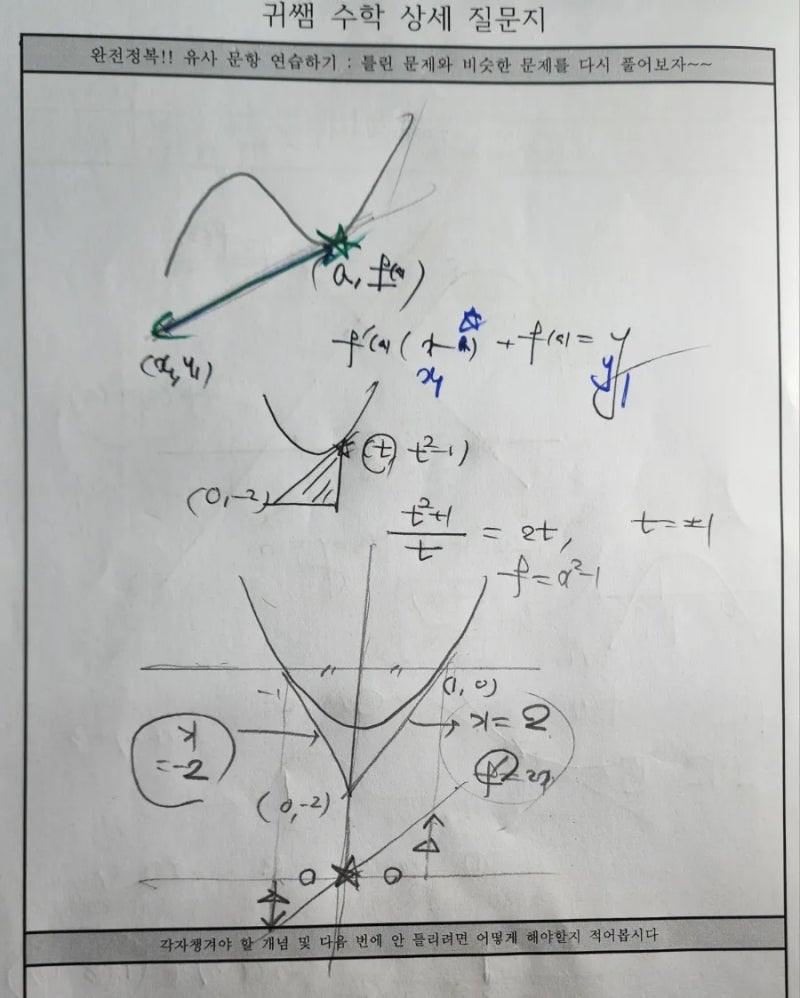 귀쌤 수학 상세 질문지
완전정복!! 유사 문항 연습하기 : 틀린 문제와 비슷한 문제를 다시 풀어보자~~
(a, f(a))
(x₁, y₁)
f'(a) ( x-a) + f(a) = y
x₁
y₁
(t, t²-1)
(0, -2)
t²+1
t
= 2t, t = ±1
f = x²-1
-1
(1, 0)
= 2
= -2
(0, -2)
각자챙겨야 할 개념 및 다음 번에 안 틀리려면 어떻게 해야할지 적어봅시다